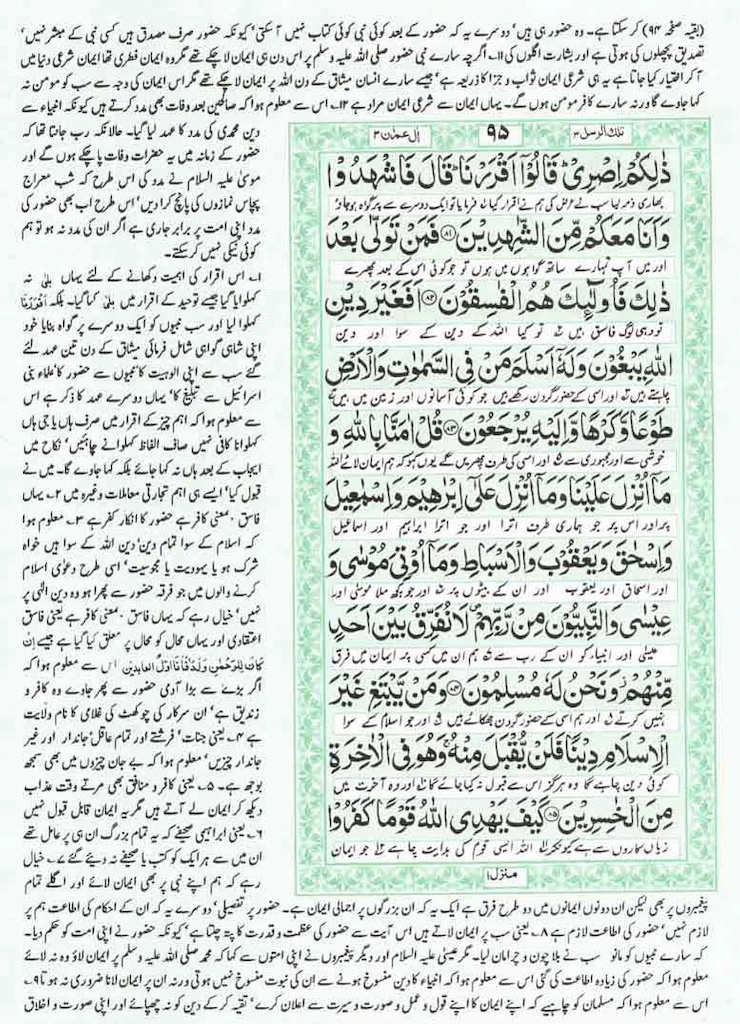 (بقیہ صفحہ ۹۴) کر سکتا ہے۔ وہ حضور ہی ہیں' دوسرے یہ کہ حضور کے بعد کوئی نبی کوئی کتاب نہیں آ سکتی' کیونکہ حضور صرف مصدق ہیں کسی نبی کے مبشر نہیں'
تصدیق پچھلوں کی ہوتی ہے اور بشارت اگلوں کی ۱۱۔ اگرچہ سارے نبی حضور صلی اللہ علیہ وسلم پر اس دن ہی ایمان لا چکے تھے مگر وہ ایمان فطری تھا ایمان شرعی دنیا میں
آ کر اختیار کیا جاتا ہے یہ ہی شرعی ایمان ثواب و جزا کا ذریعہ ہے' جیسے سارے انسان میثاق کے دن اللہ پر ایمان لا چکے تھے مگر اس ایمان کی وجہ سے سب کو مومن نہ
کہا جاوے گا ورنہ سارے کافر مومن ہوں گے۔ یہاں ایمان سے شرعی ایمان مراد ہے ۱۲۔ اس سے معلوم ہوا کہ صالحین بعد وفات بھی مدد کرتے ہیں کیونکہ انبیاء سے
تلك الرسل ۳
۹۵
اٰل عمرٰن ۳
ذٰلِكُمْ اِصْرِیْ ؕ قَالُوْۤا اَقْرَرْنَا ؕ قَالَ فَاشْهَدُوْا
بھاری ذمہ لیا سب نے عرض کی ہم نے اقرار کیا فرمایا تو ایک دوسرے پر گواہ ہو جاؤ
وَاَنَا مَعَكُمْ مِّنَ الشّٰهِدِیْنَ ۝۸۱ فَمَنْ تَوَلّٰی بَعْدَ
اور میں آپ تمہارے ساتھ گواہوں میں ہوں تو جو کوئی اس کے بعد پھرے
ذٰلِكَ فَاُولٰٓىِٕكَ هُمُ الْفٰسِقُوْنَ ۝۸۲ اَفَغَیْرَ دِیْنِ
تو وہی لوگ فاسق ہیں تو کیا اللہ کے دین کے سوا اور دین
اللّٰهِ یَبْغُوْنَ وَلَهٗۤ اَسْلَمَ مَنْ فِی السَّمٰوٰتِ وَالْاَرْضِ
چاہتے ہیں اور اسی کے حضور گردن رکھے ہیں جو کوئی آسمانوں اور زمین میں ہیں
طَوْعًا وَّكَرْهًا وَّاِلَیْهِ یُرْجَعُوْنَ ۝۸۳ قُلْ اٰمَنَّا بِاللّٰهِ وَ
خوشی سے اور مجبوری سے اور اسی کی طرف پھریں گے یوں کہو کہ ہم ایمان لائے اللہ
مَاۤ اُنْزِلَ عَلَیْنَا وَمَاۤ اُنْزِلَ عَلٰۤی اِبْرٰهِیْمَ وَاِسْمٰعِیْلَ
پر اور اس پر جو ہماری طرف اترا اور جو اترا ابراہیم اور اسماعیل
وَاِسْحٰقَ وَیَعْقُوْبَ وَالْاَسْبَاطِ وَمَاۤ اُوْتِیَ مُوْسٰی وَ
اور اسحاق اور یعقوب اور ان کے بیٹوں پر اور جو کچھ ملا موسیٰ اور
عِیْسٰی وَالنَّبِیُّوْنَ مِنْ رَّبِّهِمْ ۪ لَا نُفَرِّقُ بَیْنَ اَحَدٍ
عیسیٰ اور انبیاء کو ان کے رب سے ہم ان میں کسی پر ایمان میں فرق
مِّنْهُمْ ؗ وَنَحْنُ لَهٗ مُسْلِمُوْنَ ۝۸۴ وَمَنْ یَّبْتَغِ غَیْرَ
نہیں کرتے اور ہم اسی کے حضور گردن جھکائے ہیں اور جو اسلام کے سوا
الْاِسْلَامِ دِیْنًا فَلَنْ یُّقْبَلَ مِنْهُ ۚ وَهُوَ فِی الْاٰخِرَةِ
کوئی دین چاہے گا وہ ہرگز اس سے قبول نہ کیا جائے گا اور وہ آخرت میں
مِنَ الْخٰسِرِیْنَ ۝۸۵ كَیْفَ یَهْدِی اللّٰهُ قَوْمًا كَفَرُوْا
زیاں کاروں سے ہے کیونکر اللہ ایسی قوم کی ہدایت چاہے جو ایمان
منزل ۱
دین محمدی کی مدد کا عہد لیا گیا۔ حالانکہ رب جانتا تھا کہ
حضور کے زمانہ میں یہ حضرات وفات پا چکے ہوں گے اور
موسیٰ علیہ السلام نے مدد کی اس طرح کہ شب معراج
پچاس نمازوں کی پانچ کرا دیں' اس طرح اب بھی حضور کی
مدد اپنی امت پر برابر جاری ہے اگر ان کی مدد نہ ہو تو ہم
کوئی نیکی نہیں کر سکتے۔
۱۔ اس اقرار کی اہمیت دکھانے کے لئے یہاں بلیٰ نہ
کہلوایا گیا جیسے توحید کے اقرار میں بلیٰ کہا گیا۔ بلکہ اَقْرَرْنَا
کہلوا لیا اور سب نبیوں کو ایک دوسرے پر گواہ بنایا خود
اپنی شاہی گواہی شامل فرمائی میثاق کے دن تین عہد لئے
گئے سب سے اپنی الوہیت کا' نبیوں سے حضور کا' علماء بنی
اسرائیل سے تبلیغ کا' یہاں دوسرے عہد کا ذکر ہے اس
سے معلوم ہوا کہ اہم چیز کے اقرار میں صرف ہاں یا جی ہاں
کہلوانا کافی نہیں صاف الفاظ کہلوانے چاہئیں' نکاح میں
ایجاب کے بعد ہاں نہ کہا جائے بلکہ کہا جاوے گا۔ میں نے
قبول کیا' ایسے ہی اہم تجارتی معاملات وغیرہ میں ۲۔ یہاں
فاسق بمعنی کافر ہے حضور کا انکار کفر ہے ۳۔ معلوم ہوا
کہ اسلام کے سوا تمام دین' دین اللہ کے سوا ہیں خواہ
شرک ہو یا یہودیت یا مجوسیت' اسی طرح دعوٰی اسلام
کرنے والوں میں جو فرقہ حضور سے پھرا ہو وہ دین الٰہی پر
نہیں' خیال رہے کہ یہاں فاسق بمعنی کافر ہے یعنی فاسق
اعتقادی اور یہاں محال کو محال پر معلق کیا گیا ہے جیسے اِنْ
كَانَ لِلرَّحْمٰنِ وَلَدٌ فَاَنَا اَوَّلُ الْعَابِدِیْنَ اس سے معلوم ہوا کہ
اگر بڑے سے بڑا آدمی حضور سے پھر جاوے وہ کافر و
زندیق ہے' ان سرکار کی چوکھٹ کی غلامی کا نام ولایت
ہے ۴۔ یعنی جنات' فرشتے اور تمام عاقل' جاندار اور غیر
جاندار چیزیں' معلوم ہوا کہ بے جان چیزوں میں بھی سمجھ
بوجھ ہے۔ ۵۔ یعنی کافر و منافق بھی مرتے وقت عذاب
دیکھ کر ایمان لے آتے ہیں مگر یہ ایمان قابل قبول نہیں
۶۔ یعنی ابراہیمی صحیفے کہ یہ تمام بزرگ ان ہی پر عامل تھے
ان میں سے ہر ایک کو کتب یا صحیفے نہ دیئے گئے ۷۔ خیال
رہے کہ ہم اپنے نبی پر بھی ایمان لائے اور اگلے تمام
پیغمبروں پر بھی لیکن ان دونوں ایمانوں میں دو طرح فرق ہے ایک یہ کہ ان بزرگوں پر اجمالی ایمان ہے۔ حضور پر تفصیلی' دوسرے یہ کہ ان کے احکام کی اطاعت ہم پر
لازم نہیں' حضور کی اطاعت لازم ہے ۸۔ یعنی سب پر ایمان لاتے ہیں اس آیت سے حضور کی عظمت و قدرت کا پتہ چلتا ہے' کیونکہ حضور نے اپنی امت کو حکم دیا۔
کہ سارے نبیوں کو مانو سب نے بلا چون و چرا مان لیا۔ مگر عیسیٰ علیہ السلام اور دیگر پیغمبروں نے اپنی امتوں سے کہا کہ محمد صلی اللہ علیہ وسلم پر ایمان لاؤ وہ نہ لائے
معلوم ہوا کہ حضور کی زیادہ اطاعت کی گئی اس سے معلوم ہوا کہ انبیاء کا دین منسوخ ہونے سے ان کی نبوت منسوخ نہیں ہوتی ورنہ ان پر ایمان لانا ضروری نہ ہوتا ۹۔
اس سے معلوم ہوا کہ مسلمان کو چاہیے کہ اپنے ایمان کا اپنے قول و عمل و صورت و سیرت سے اعلان کرے' تقیہ کر کے دین کو نہ چھپائے اور اپنی صورت و اخلاق